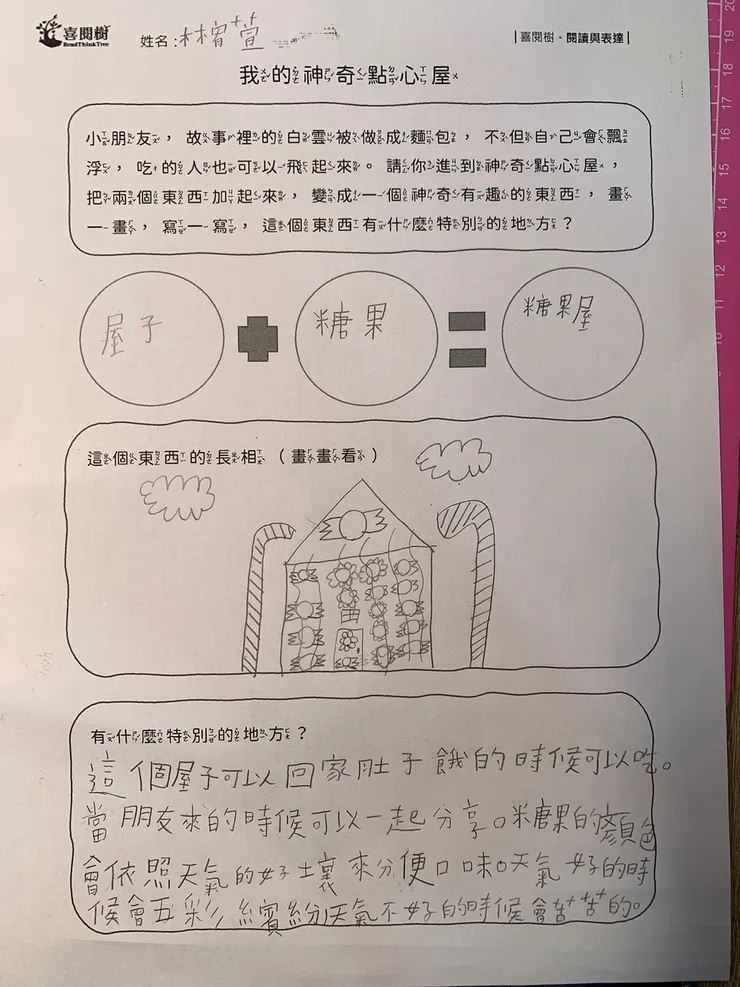 喜閱樹
ReadThinkTree
姓名：林宥萱
|喜閱樹・閱讀與表達|
我的神奇點心屋
小朋友，故事裡的白雲被做成麵包，不但自己會飄
浮，吃的人也可以飛起來。請你進到神奇點心屋，
把兩個東西加起來，變成一個神奇有趣的東西，畫
一畫，寫一寫，這個東西有什麼特別的地方？
屋子
糖果
糖果屋
這個東西的長相（畫畫看）
有什麼特別的地方？
這個屋子可以回家肚子餓的時候可以吃。
當朋友來的時候可以一起分享。糖果的顏色
會依照天氣的好壤來分便口味。天氣好的時
候會五彩繽紛天氣不好的時候會苦苦的。